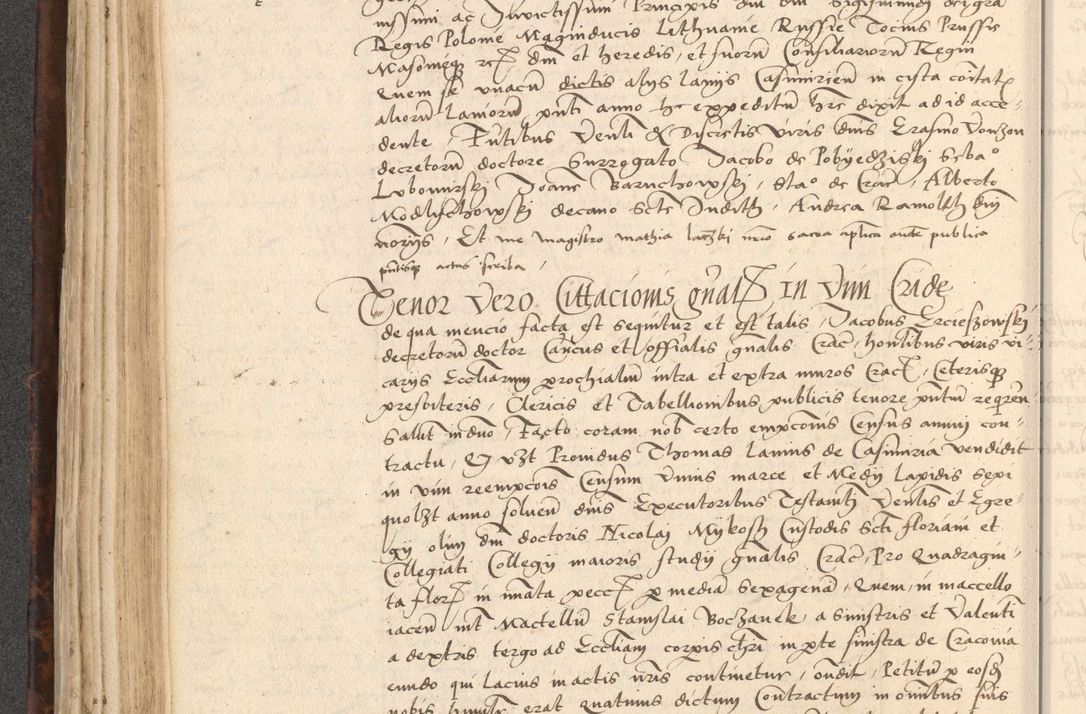 nissimi ac Invictissimi Principis dni dni Sigismundi dei gra
Regis Polonie Magniducis Lithuanie Russie Tocius Prussie
Masovieqz rcz dni et heredis, et suoru Consiliarioru Regni
Quem se unacu dictis alijs Lanijs Casimirien in cista coitatz
alioru Lanioru pnti anno hc expeditu hre dixit ad id acce-
dente, Pntibus Venli & Discretis viris dnis Erasmo Vonzon
decretoru doctore Surrogato Jacobo de Pobyedziski Seba°
Lubomirski Joane Baruchowski, Sta° de Crac, Alberto
Modlischowski decano Scte Judith, Andrea Ramolth diui
noriis, Et me magistro mathia lanczki nrio sacra aplica aucte publico
pntisqz actus scriba,
Tenor Vero Cittacionis gnalz in Vim Cride
de qua mencio facta est sequitur et est talis, Jacobus Ercieszowski
decretoru doctor Cancus et Offialis gnalis Crac, honlibus viris vi-
carijs Eccliarum prochialiu intra et extra muros Cracz, Ceterisqz
presbiteris, Clericis et Tabellionibus publicis tenore pntiu requren
Salut in dno, Facto coram nob certo empcionis Census annui con-
tractu, Q uzt Providus Thomas Lanius de Casimiria vendidit
in vim reempcois Censum Unius marce et Medij lapidis sepi
quolzt anno solven dnis Executoribus Testamti Venlis et Egre-
gij olim dni doctoris Nicolai Mykosz Custodis Scti floriani et
Collegiati Collegij maioris studij gnalis Crac, Pro Quadragin-
ta florz in mnata peccz p media Sexagena, Quem, in maccello
iacen int Macellu Stanislai Boczanek a sinistris et Valenti
a dextris tergo ad Eccliam corpis chri in pte sinistra de Cracovia
eundo qui Lacius in actis nris continetur, ondit, Petitu p eosd
nobis humilr erat quatinus dictum Contractum in omibus suis